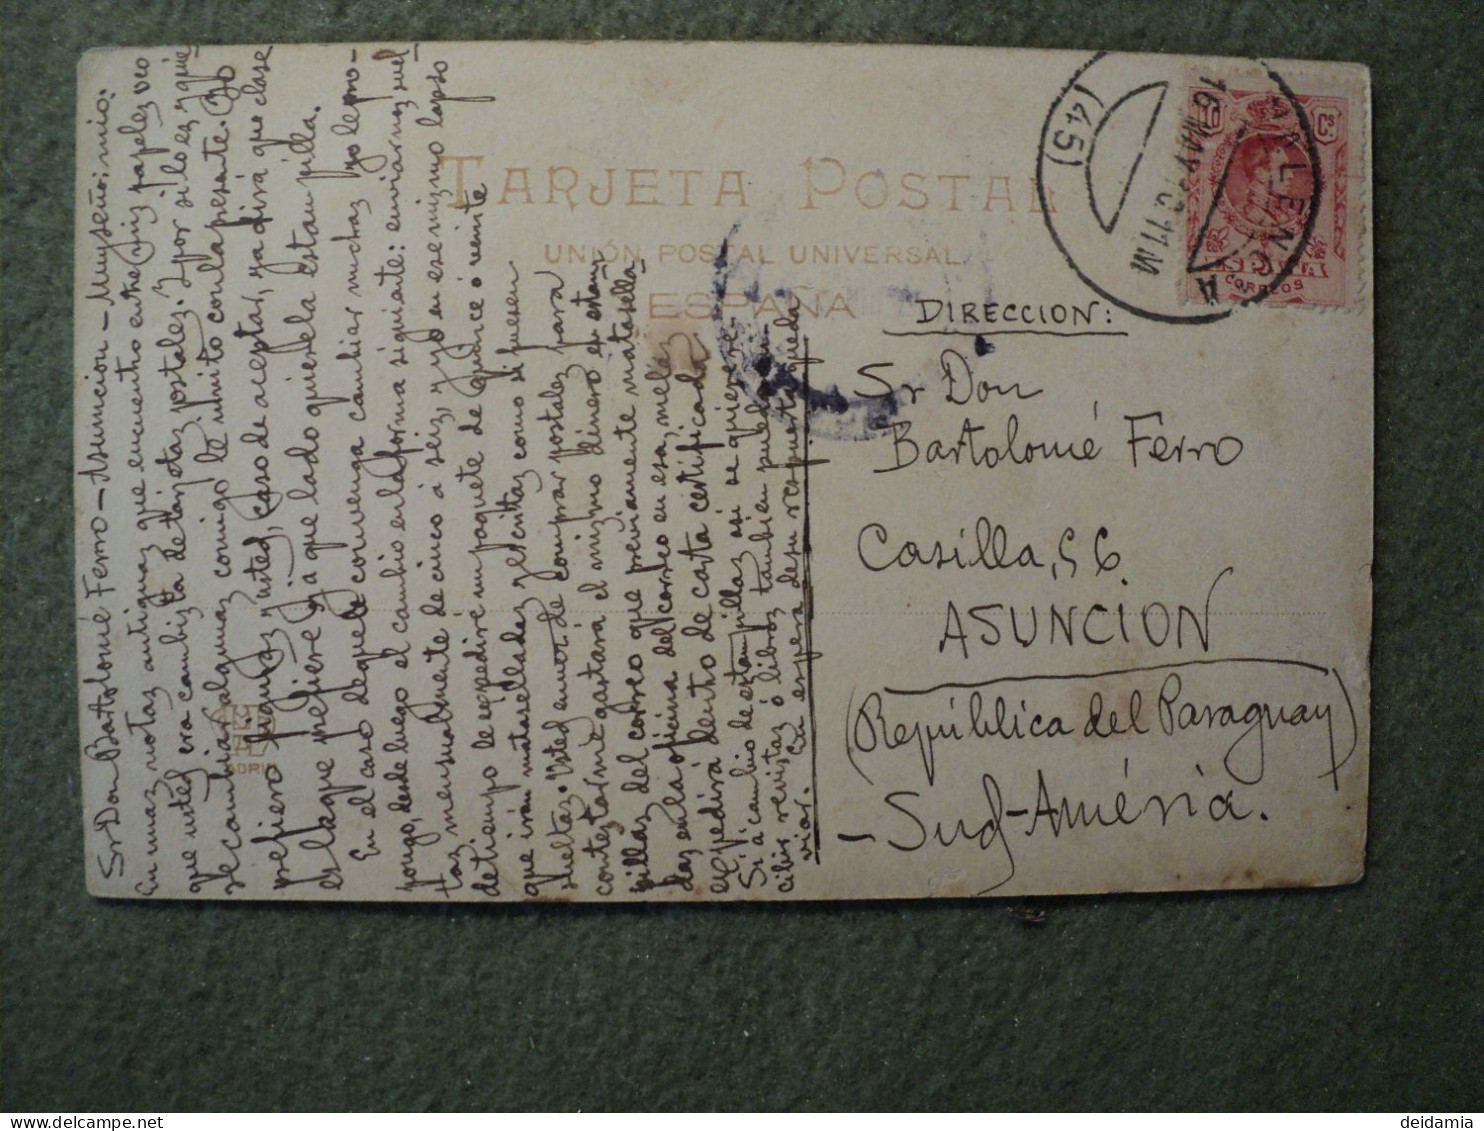 TARJETA POSTAL
UNIÓN POSTAL UNIVERSAL
ESPAÑA
Sr Don Bartolomé Ferro - Asuncion - Muy señor mio:
En unas notas antiguas que encuentro entre mis papeles veo
que usted era cambista de tarjetas postales. Y por si lo es y quie-
re cambiar algunas conmigo le invito con la presente. Yo
prefiero figuras y usted, caso de aceptar, ya dirá que clase
es la que prefiere y a que lado quiere la estampilla.
En el caso de que le convenga cambiar muchas yo le pro-
pongo, desde luego el cambio en la forma siguiente: enviarnos suel-
tas mensualmente de cinco á seis, y yo en ese mismo lapso
de tiempo le expediré un paquete de quince ó veinte
que irán mataselladas y escritas como si fuesen
sueltas. Usted en vez de comprar postales para
contestarme gastará el mismo dinero en estam-
pillas del correo que previamente matasella-
das en la oficina del correo en esa, me las
expedirá dentro de carta certificada.
Si á cambio de estampillas asi se quiere re-
cibir revistas ó libros tambien puede
En espera de su respuesta queda
DIRECCION:
Sr Don
Bartolomé Ferro
Casilla, 56
ASUNCION
(República del Paraguay)
- Sud-América.
VALENCIA
(45)
16 MAY 11 M
10 Cs
ESPAÑA
CORREOS
MADRID
deidamia